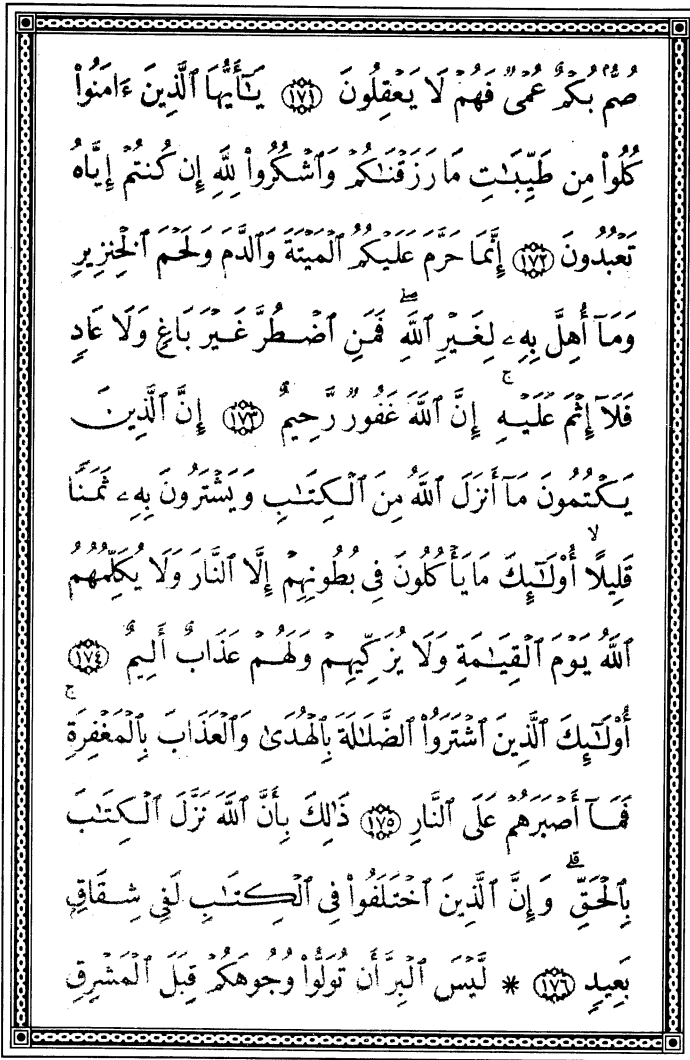 صُمُّۢ بُكۡمٌ عُمۡيٞ فَهُمۡ لَا يَعۡقِلُونَ ١٧١ يَٰٓأَيُّهَا ٱلَّذِينَ ءَامَنُواْ
كُلُواْ مِن طَيِّبَٰتِ مَا رَزَقۡنَٰكُمۡ وَٱشۡكُرُواْ لِلَّهِ إِن كُنتُمۡ إِيَّاهُ
تَعۡبُدُونَ ١٧٢ إِنَّمَا حَرَّمَ عَلَيۡكُمُ ٱلۡمَيۡتَةَ وَٱلدَّمَ وَلَحۡمَ ٱلۡخِنزِيرِ
وَمَآ أُهِلَّ بِهِۦ لِغَيۡرِ ٱللَّهِۖ فَمَنِ ٱضۡطُرَّ غَيۡرَ بَاغٖ وَلَا عَادٖ
فَلَآ إِثۡمَ عَلَيۡهِۚ إِنَّ ٱللَّهَ غَفُورٞ رَّحِيمٌ ١٧٣ إِنَّ ٱلَّذِينَ
يَكۡتُمُونَ مَآ أَنزَلَ ٱللَّهُ مِنَ ٱلۡكِتَٰبِ وَيَشۡتَرُونَ بِهِۦ ثَمَنٗا
قَلِيلًا ۙ أُوْلَٰٓئِكَ مَا يَأۡكُلُونَ فِي بُطُونِهِمۡ إِلَّا ٱلنَّارَ وَلَا يُكَلِّمُهُمُ
ٱللَّهُ يَوۡمَ ٱلۡقِيَٰمَةِ وَلَا يُزَكِّيهِمۡ وَلَهُمۡ عَذَابٌ أَلِيمٌ ١٧٤
أُوْلَٰٓئِكَ ٱلَّذِينَ ٱشۡتَرَوُاْ ٱلضَّلَٰلَةَ بِٱلۡهُدَىٰ وَٱلۡعَذَابَ بِٱلۡمَغۡفِرَةِۚ
فَمَآ أَصۡبَرَهُمۡ عَلَى ٱلنَّارِ ١٧٥ ذَٰلِكَ بِأَنَّ ٱللَّهَ نَزَّلَ ٱلۡكِتَٰبَ
بِٱلۡحَقِّۗ وَإِنَّ ٱلَّذِينَ ٱخۡتَلَفُواْ فِي ٱلۡكِتَٰبِ لَفِي شِقَاقِۭ
بَعِيدٖ ١٧٦ * لَّيۡسَ ٱلۡبِرَّ أَن تُوَلُّواْ وُجُوهَكُمۡ قِبَلَ ٱلۡمَشۡرِقِ